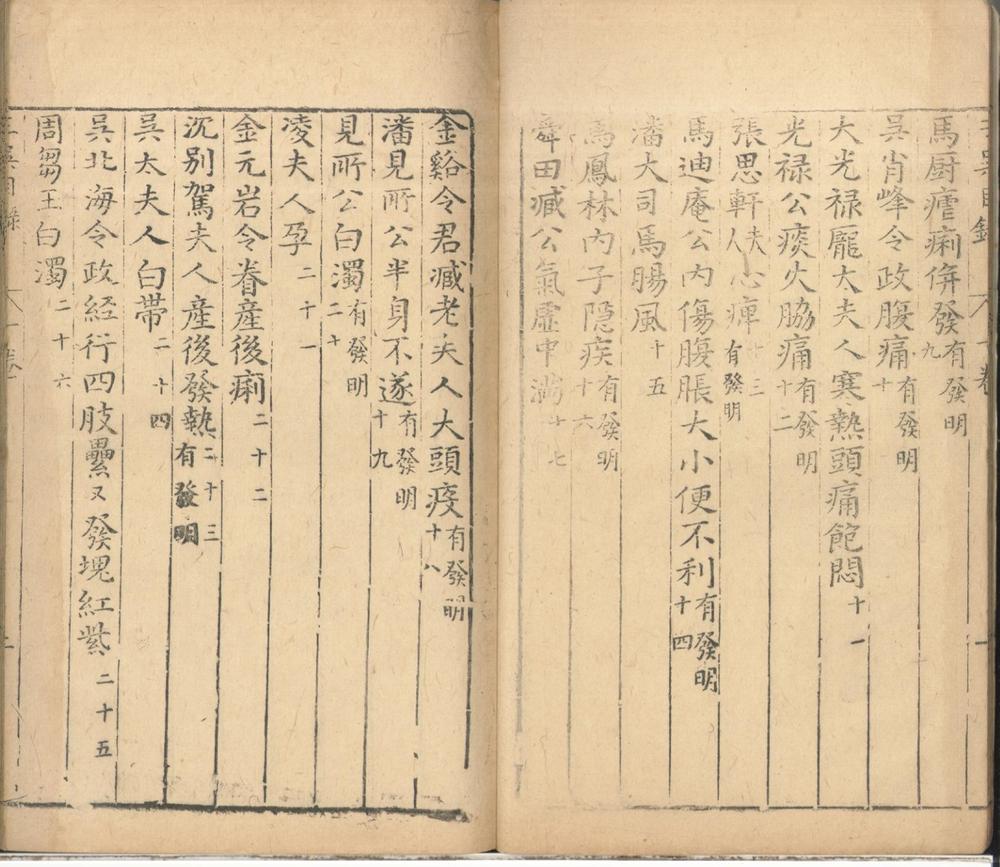 三吳目錄 一卷 一
馬厨瘧痢併發有發明九
吳肖峰令政腹痛有發明十
大光禄龎太夫人寒熱頭痛飽悶十一
光禄公痰火脇痛有發明十二
張思軒夫人心痺十三有發明
馬迪庵公內傷腹脹大小便不利有發明十四
潘大司馬腸風十五
馬鳳林內子隠疾有發明十六
舜田臧公氣虛中滿十七
金谿令君臧老夫人大頭疫有發明十八
潘見所公半身不遂有發明十九
見所公白濁有發明二十
凌夫人孕二十一
金元岩令眷產後痢二十二
沉别駕夫人產後發熱二十三有發明
吳太夫人白帶二十四
吳北海令政經行四肢纍又發塊紅紫二十五
周芻玉白濁二十六
三吳目錄 一卷 二